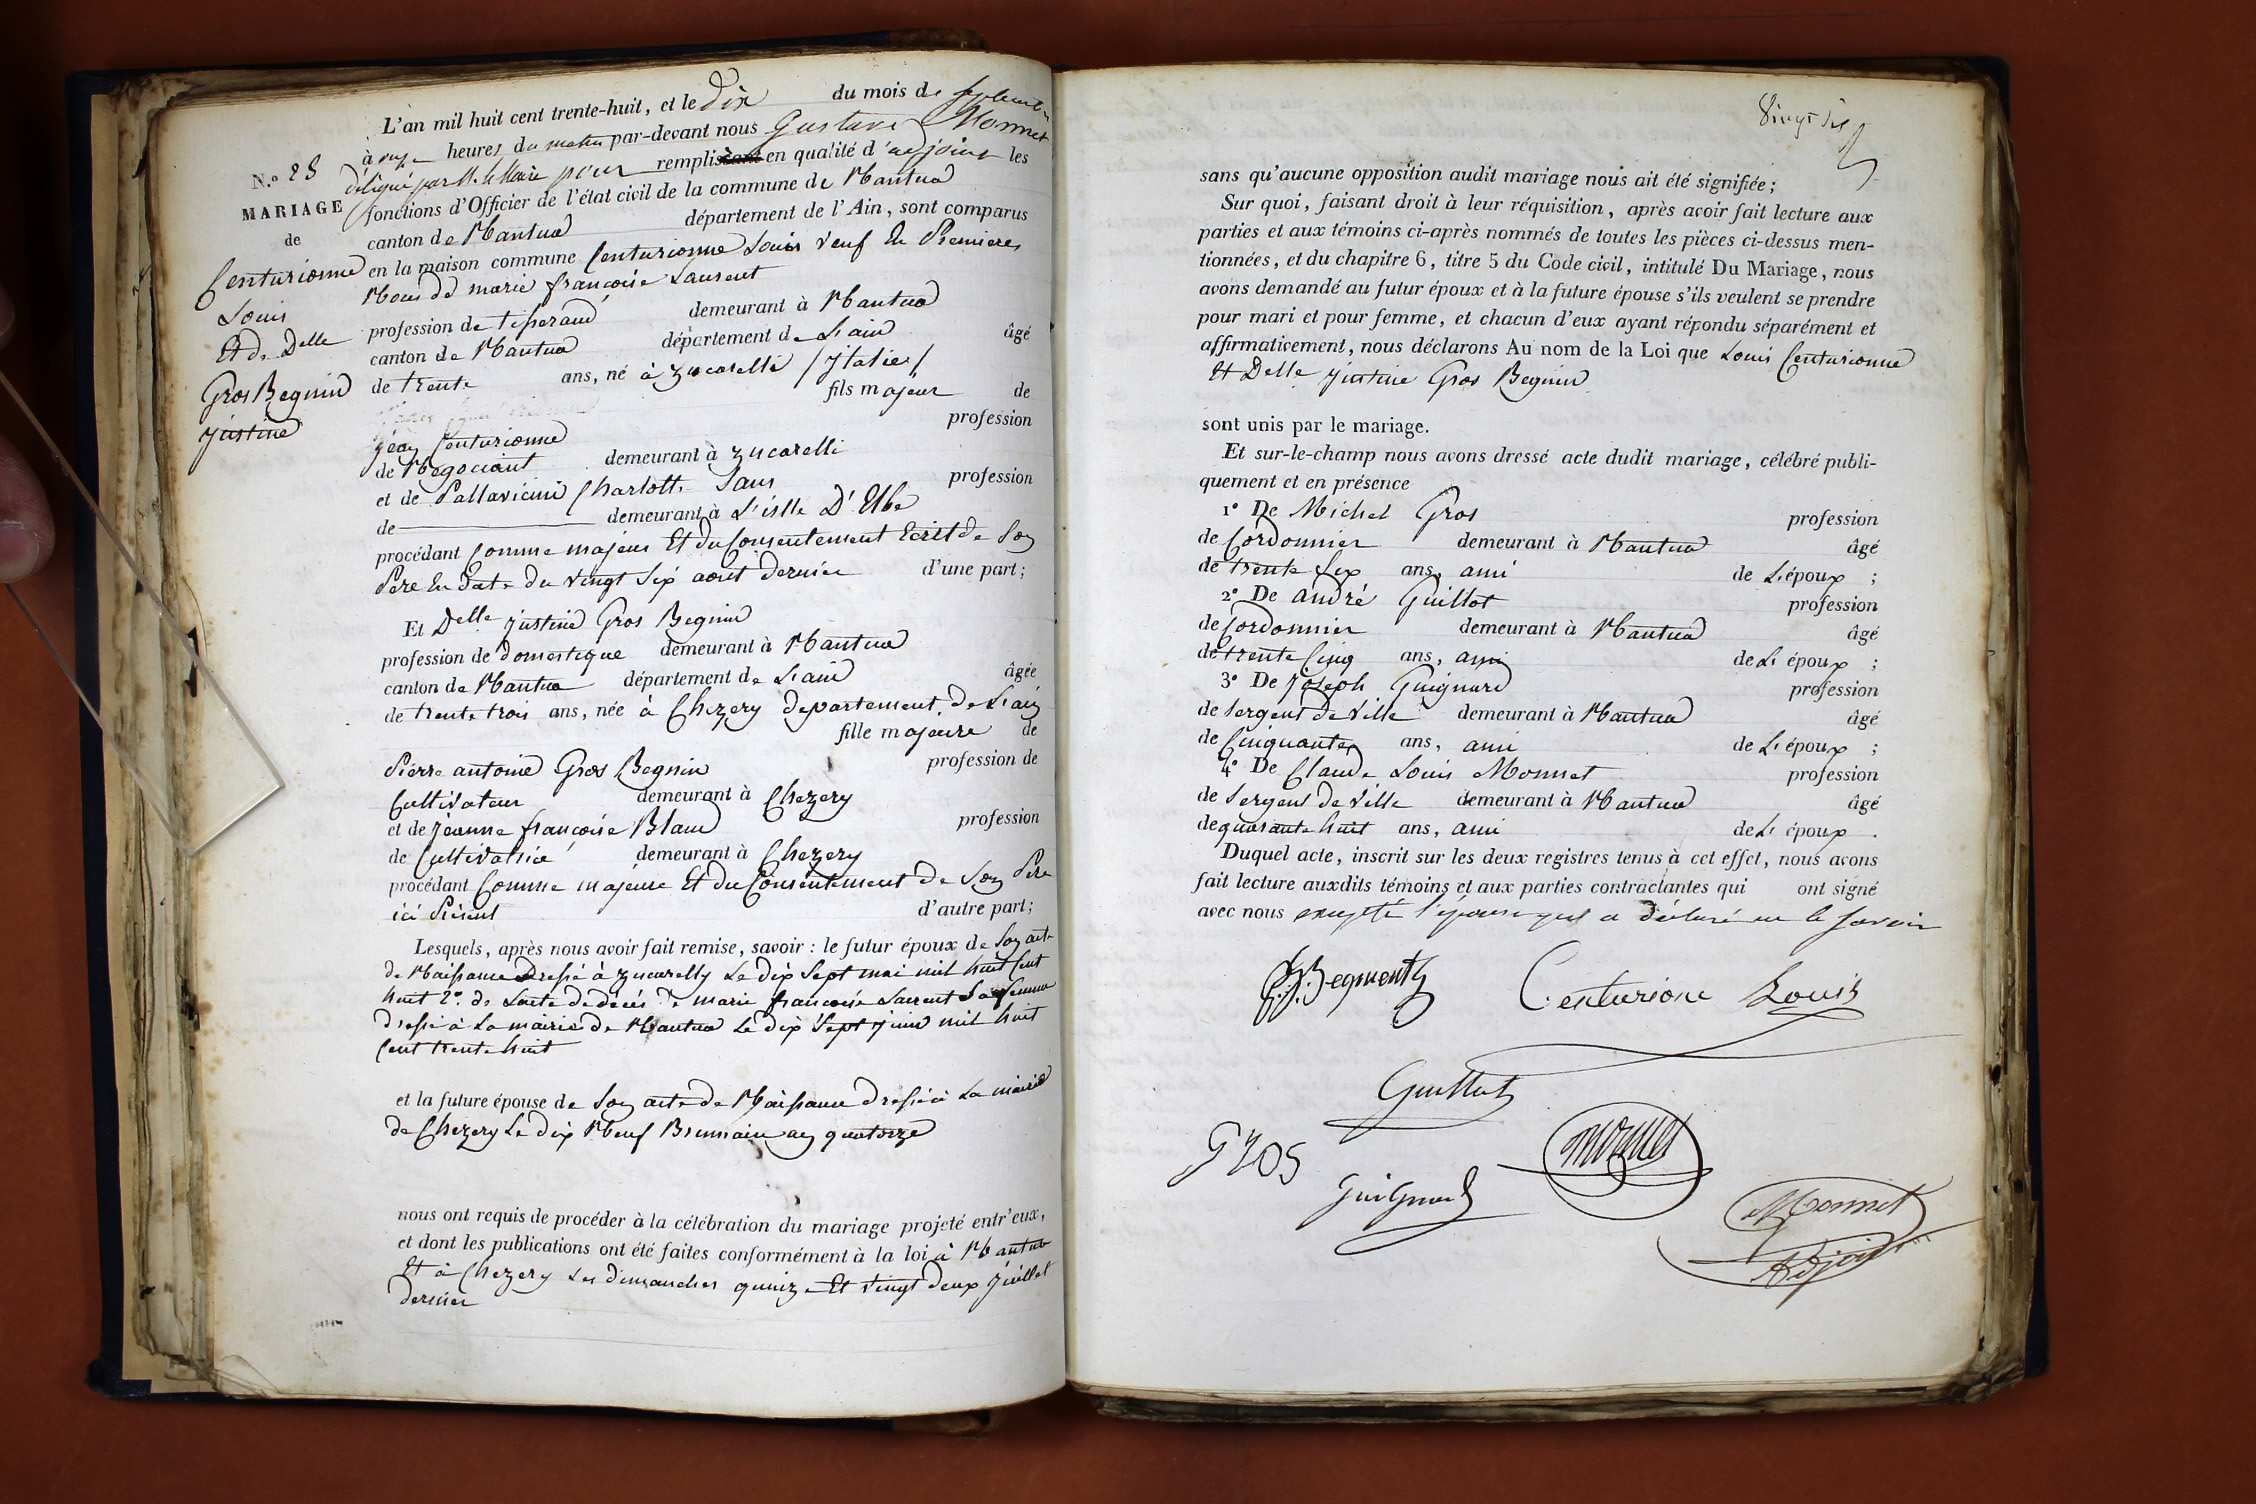 L'an mil huit cent trente-huit, et le Dix du mois de Septembre
à onze heures du matin par-devant nous Gustave Monnet
délégué par M. le Maire pour remplissant en qualité d'adjoint les
fonctions d'Officier de l'état civil de la commune de Nantua
canton de Nantua département de l'Ain, sont comparus
en la maison commune Centurionne Louis veuf En Premieres
Noces de marie françoise Laurent
profession de tisserand demeurant à Nantua
canton de Nantua département de L'ain âgé
de trente ans, né à zucarelli (Italie)
fils majeur de
profession
N.° 28
MARIAGE
de
Centurionne
Louis
Et de Delle
Gros Begnin
Justine
jean Centurionne
de Négociant demeurant à zucarelli
et de Pallavicini Charlotte Sans profession
de demeurant à L'isle D'Elbe
procédant Comme majeur Et du Consentement Ecrit de Son
Père En Date du vingt Six aout Dernier d'une part;
Et Delle justine Gros Begnin
profession de domestique demeurant à Nantua
canton de Nantua département de L'ain âgée
de trente trois ans, née à Chezery departement de L'ain
fille majeure de
Pierre antoine Gros Begnin profession de
Cultivateur demeurant à Chezery
et de jeanne françoise Blanc profession
de Cultivatrice demeurant à Chezery
procédant Comme majeure Et du Consentement de Son Père
ici Présent d'autre part;
Lesquels, après nous avoir fait remise, savoir : le futur époux de Son acte
de Naissance Dressé à zucarelly Le dix Sept mai mil huit Cent
huit 2°. de L'acte de décès de marie françoise Laurent Sa femme
dressé à La mairie de Nantua Le dix Sept juin mil huit
Cent trente huit
et la future épouse de Son acte de Naissance dressé à La mairie
de Chezery Le dix Neuf Brumaire an quatorze
nous ont requis de procéder à la célébration du mariage projeté entr'eux,
et dont les publications ont été faites conformément à la loi à Nantua
Et à Chezery Les dimanches quinze Et vingt deux juillet
dernier
Vingt Six
sans qu'aucune opposition audit mariage nous ait été signifiée;
Sur quoi, faisant droit à leur réquisition, après avoir fait lecture aux
parties et aux témoins ci-après nommés de toutes les pièces ci-dessus men-
tionnées, et du chapitre 6, titre 5 du Code civil, intitulé Du Mariage, nous
avons demandé au futur époux et à la future épouse s'ils veulent se prendre
pour mari et pour femme, et chacun d'eux ayant répondu séparément et
affirmativement, nous déclarons Au nom de la Loi que Louis Centurionne
Et Delle justine Gros Begnin
sont unis par le mariage.
Et sur-le-champ nous avons dressé acte dudit mariage, célébré publi-
quement et en présence
1° De Michel Gros profession
de Cordonnier demeurant à Nantua âgé
de trente Six ans, ami de L'époux ;
2° De andré Guillot profession
de Cordonnier demeurant à Nantua âgé
de trente Cinq ans, ami de L'époux ;
3° De joseph Guignard profession
de Sergent de ville demeurant à Nantua âgé
de Cinquante ans, ami de L'époux ;
4° De Claude Louis Monnet profession
de Sergent de ville demeurant à Nantua âgé
de quarante huit ans, ami de L'époux .
Duquel acte, inscrit sur les deux registres tenus à cet effet, nous avons
fait lecture auxdits témoins et aux parties contractantes qui ont signé
avec nous excepté l'épouse qui a déclaré ne le savoir
Centurione Louis
Guillot
Gros
Guignard
monnet
Monnet
Adjoint